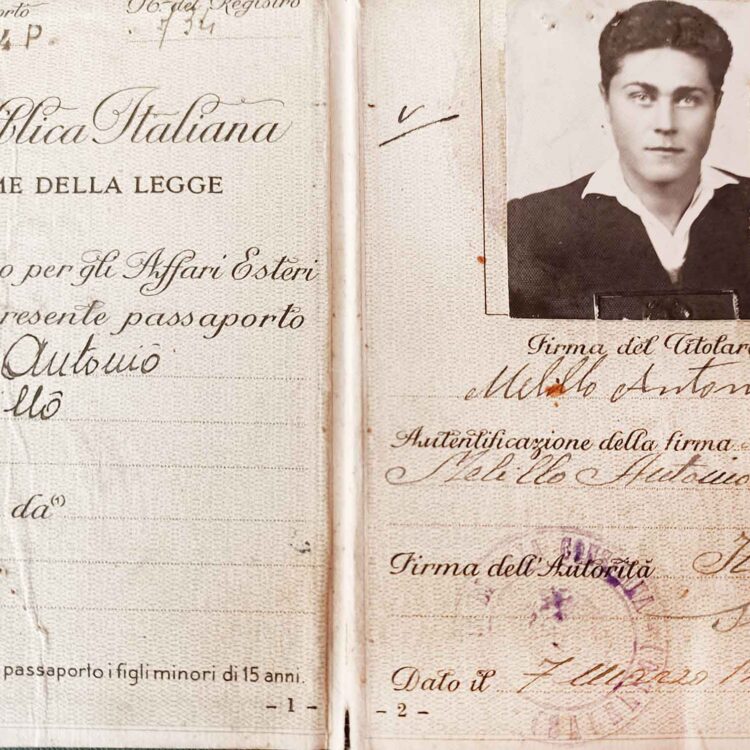 N. del Registro
4 P. 734
blica Italiana
ME DELLA LEGGE
o per gli Affari Esteri
resente passaporto
Antonio
llo
da (1)
passaporto i figli minori di 15 anni.
- 1 -
Firma del Titolar
Melillo Anton
Autentificazione della firma
Melillo Antonio
Firma dell'Autorità
Dato il 7 Marzo 1
- 2 -